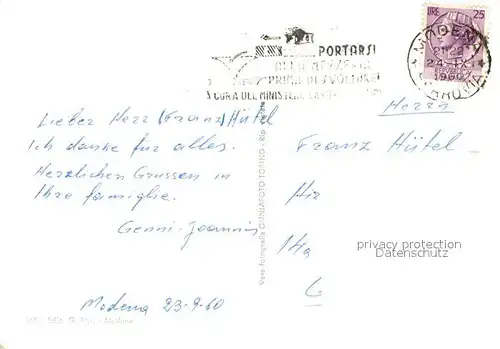 LIRE 25
MODENA
21-22
24.IX.
1960
FERROVIA
PORTARSI
ALLA MEZZERIA
PRIMA DI SVOLTARE
A CURA DEL MINISTERO
Lieber Herr (Franz) Hütel
Ich danke für alles.
Herzlichen Grussen in
Ihre famiglie.
Genni-Joannis
Modena 23-9-60
Vera Fotografia OMNIAFOTO TORINO - Rip.
Herrn
Franz Hütel
Hir
14a
privacy protection
Datenschutz